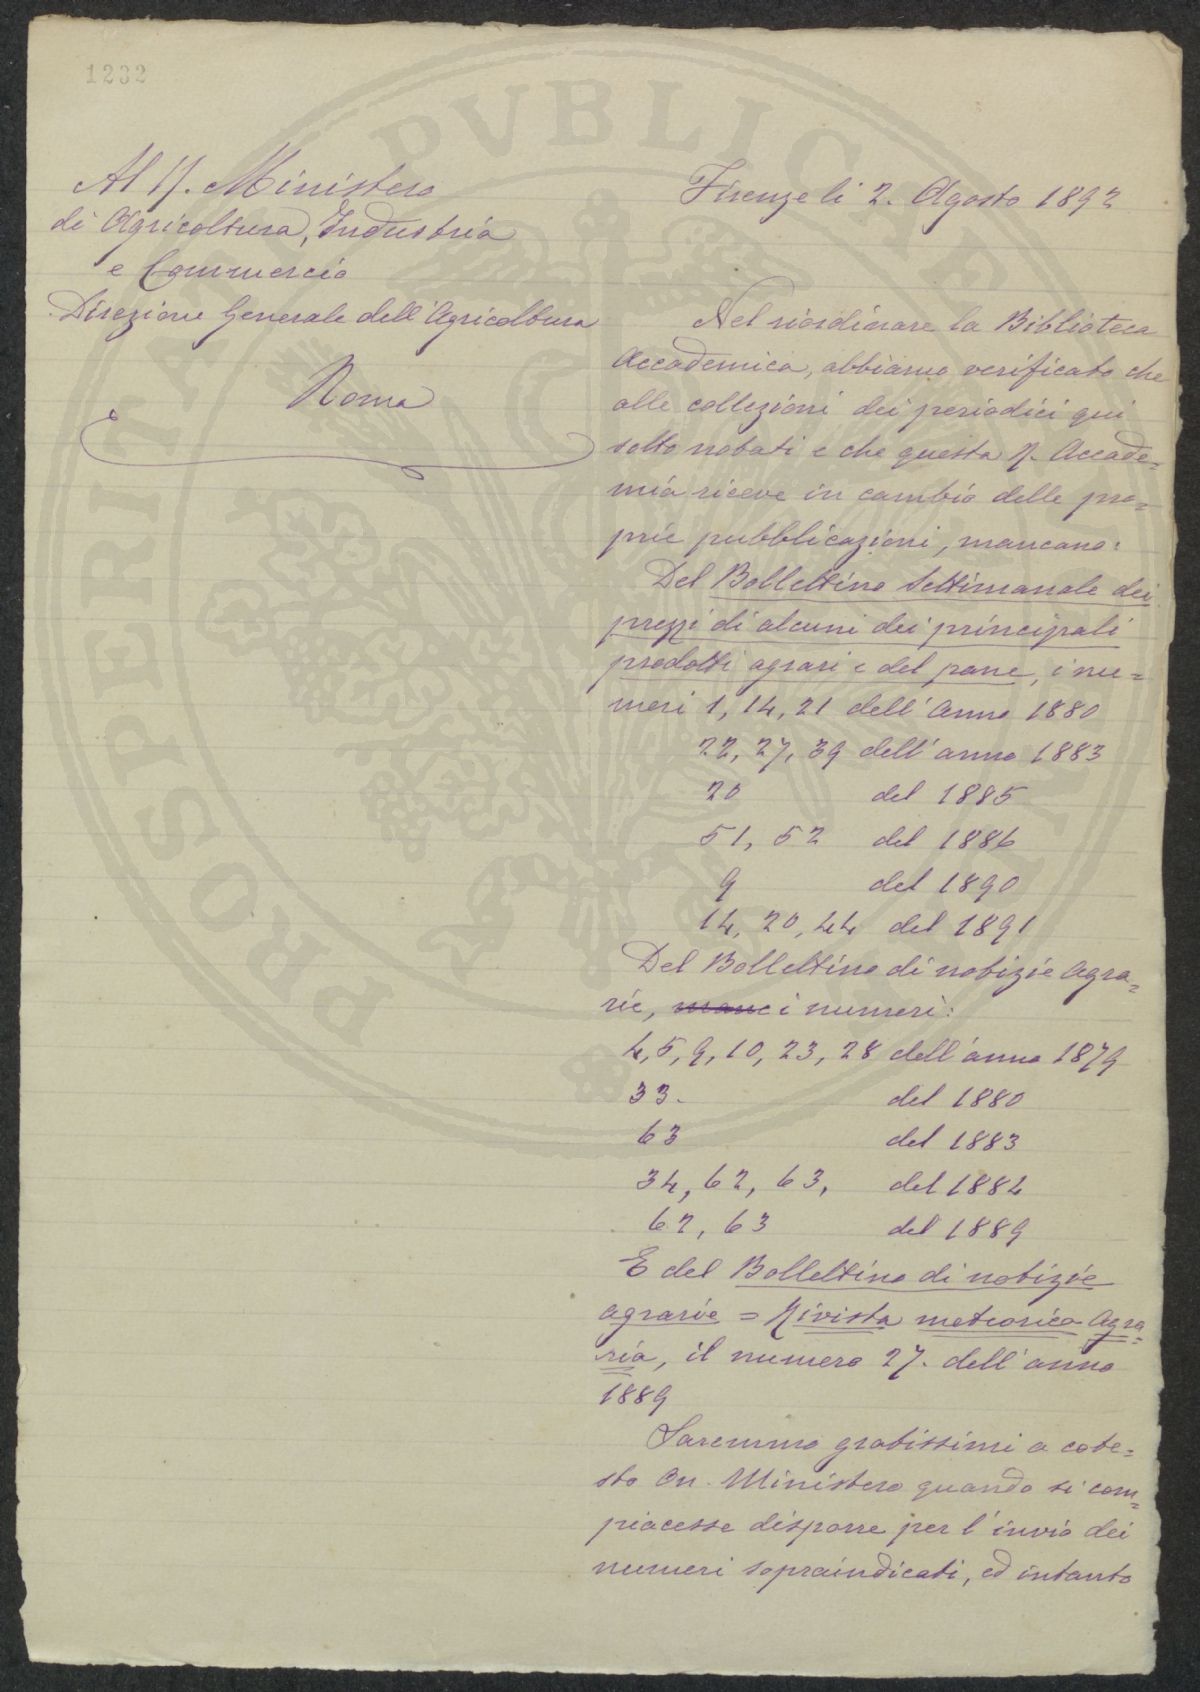 1232
Al R. Ministero
di Agricoltura, Industria
e Commercio
Direzione Generale dell'Agricoltura
Roma
Firenze li 2. Agosto 1892
Nel riordinare la Biblioteca
Accademica, abbiamo verificato che
alle collezioni dei periodici qui
sotto notati e che questa R. Accade=
mia riceve in cambio delle pro=
prie pubblicazioni, mancano:
Del Bollettino Settimanale dei
prezzi di alcuni dei principali
prodotti agrari e del pane, i nu=
meri 1, 14, 21 dell'anno 1880
22, 27, 39 dell'anno 1883
20 del 1885
51, 52 del 1886
9 del 1890
14, 20, 44 del 1891
Del Bollettino di notizie Agra=
rie, manc i numeri:
4, 5, 9, 10, 23, 28 dell'anno 1879
33. del 1880
63 del 1883
34, 62, 63, del 1884
62, 63 del 1889
E del Bollettino di notizie
agrarie = Rivista meteorico Agra=
ria, il numero 27. dell'anno
1889
Saremmo gratissimi a cote=
sto On. Ministero quando si com=
piacesse disporre per l'invio dei
numeri sopraindicati, ed intanto
PROSPERITATI PUBLICAE